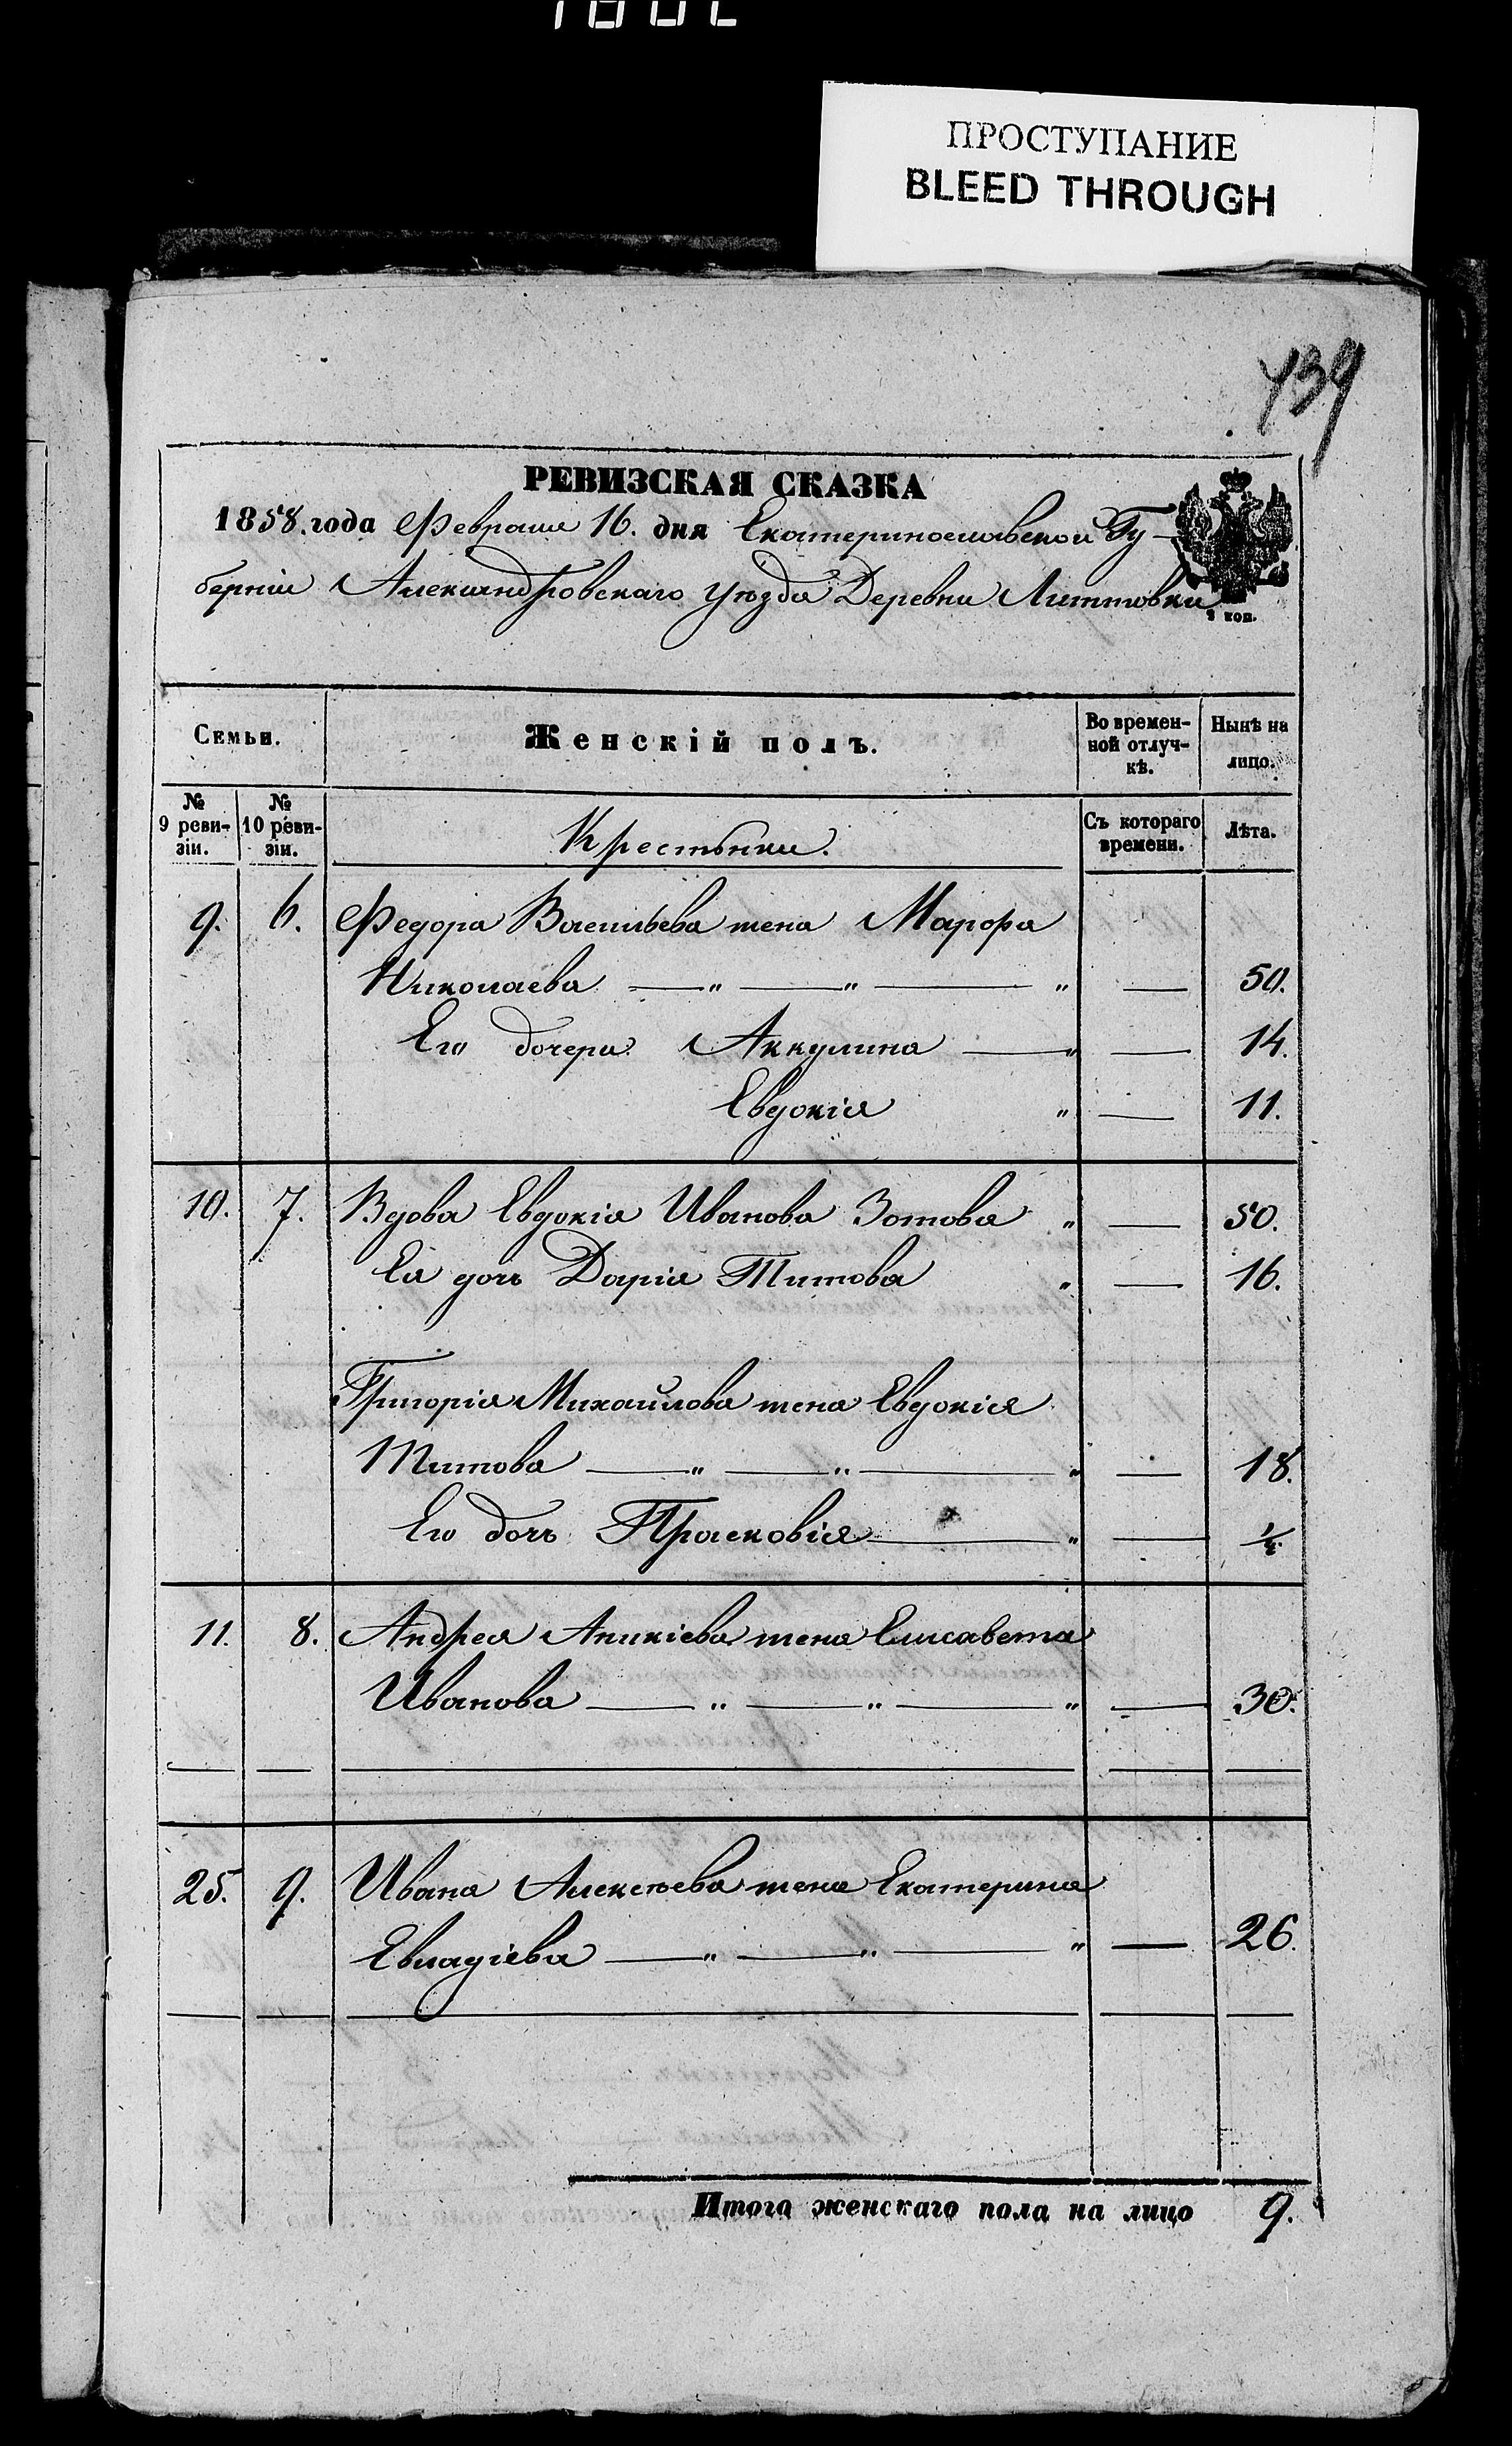 ПРОСТУПАНИЕ
BLEED THROUGH
439
РЕВИЗСКАЯ СКАЗКА
1858. года Февраля 16. дня Екатеринославской Гу-
берніи Александровскаго уѣзда Деревни Литтовки
2 коп.
Семьи. Женскій полъ. Во времен-ной отлуч-кѣ. Нынѣ на лицо.
№ 9 реви-зіи. № 10 реви-зіи. Крестьянки. Съ котораго времени. Лѣта.
9. 6. Федора Васильева жена Марфа
Николаева — „ — „ — „ — 50.
Его дочери Аккулина — „ — 14.
Евдокія „ — 11.
10. 7. Вдова Евдокія Иванова Зотова „ — 50.
Ея дочь Дарія Титова „ — 16.
Григорія Михайлова жена Евдокія
Титова — „ — „ — „ — 18.
Его дочь Прасковія — „ — 1/4.
11. 8. Андрея Аникіева жена Елисавета
Иванова — „ — „ — „ — 30.
25. 9. Ивана Алексѣева жена Екатерина
Евладіева — „ — „ — „ — 26.
Итого женскаго пола на лицо 9.